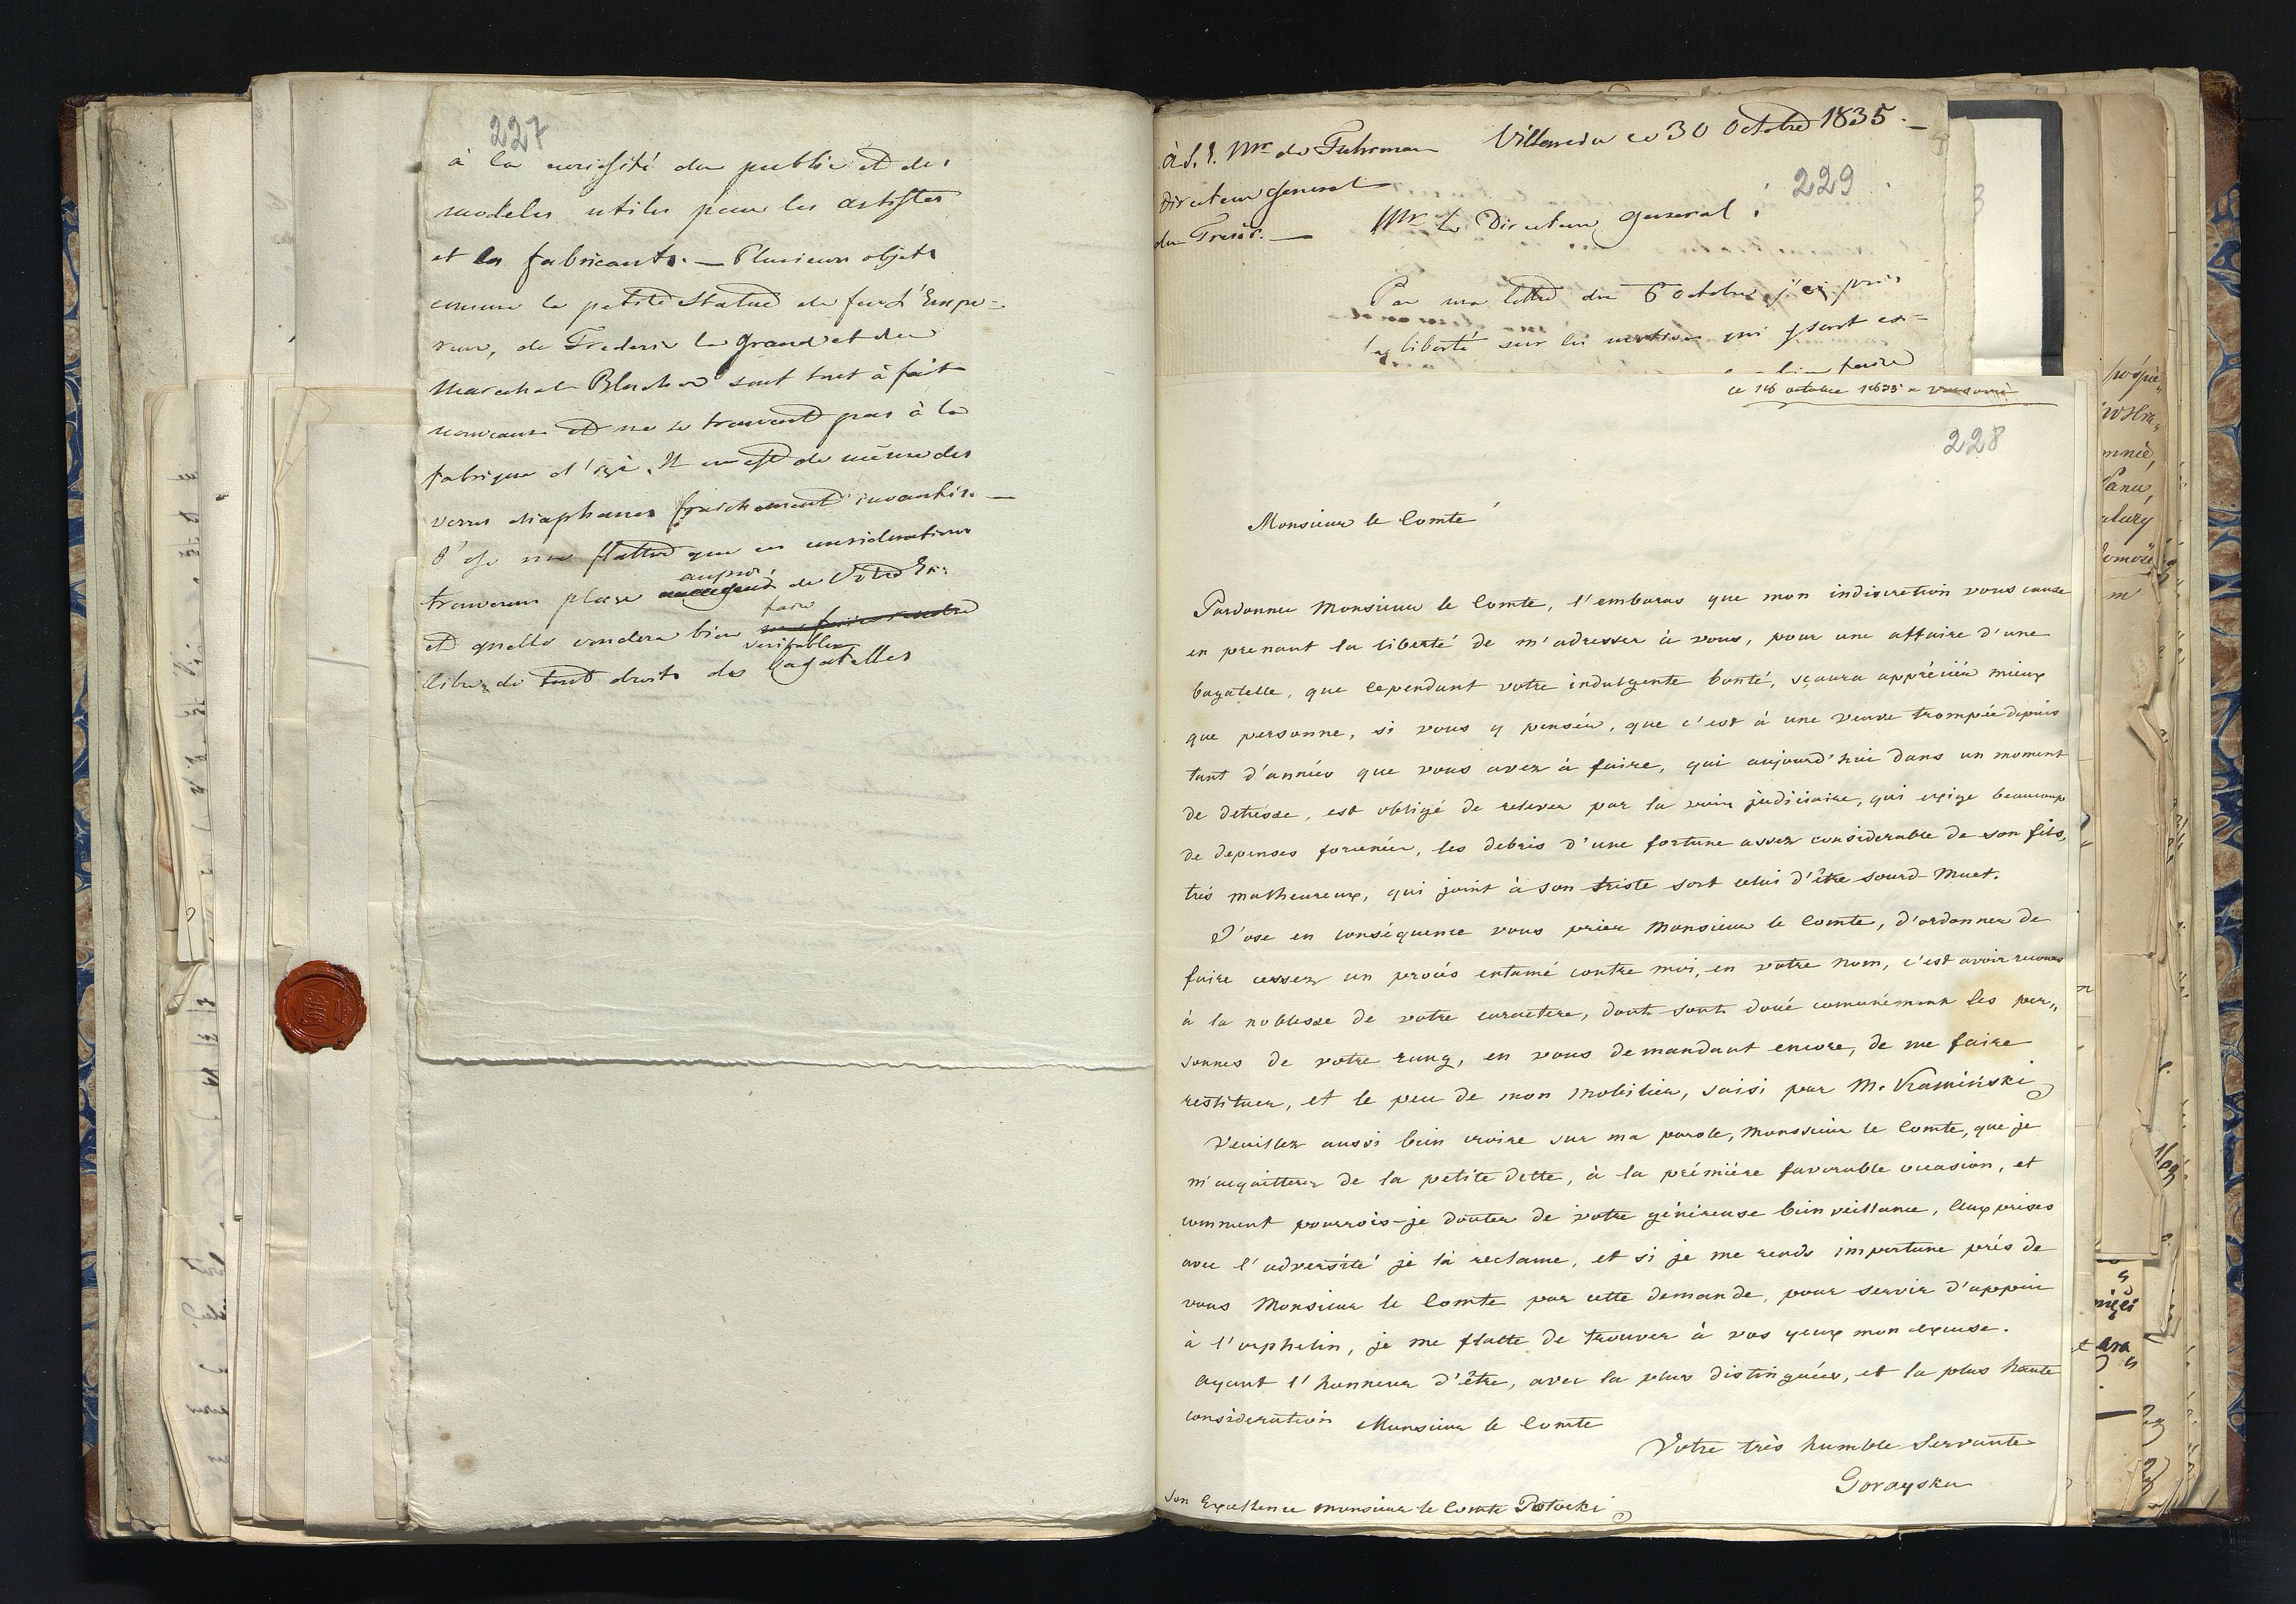 227
à la curiosité du public et des
modeles utiles pour les artistes
et les fabricants. — Plusieurs objets
comme la petite Statue de feu L'Empe-
reur, de Frederic le Grand et du
Marechal Blucher sont tout à fait
nouveaux et ne se trouvent pas à la
fabrique d'ici. Il en est de même des
verres diaphanes fraichement inventés. —
J'ose me flatter que ces considerations
trouveront place auprès de Votre Ex:
et qu'elle voudra bien faire
libre de tout droits des veritables bagatelles
à S. E. Mr de Fuhrman
Directeur General
du Tresor. —
Villanow ce 30 Octobre 1835. —
229
Mr Le Directeur General!
Par ma lettre du 6 Octobre j'ai pris
la liberté sur les
faire
ce 18 octobre 1835 a Varsovie
228
Monsieur le Comte
Pardonnez Monsieur le Comte, l'embaras que mon indiscretion vous cause
en prenant la liberté de m'adresser à vous, pour une affaire d'une
bagatelle, que cependant votre indulgente bonté, sçaura appréciér mieux
que personne, si vous y pensér, que c'est à une veuve trompée depuis
tant d'années que vous avez à faire, qui aujourd'hui dans un moment
de detresse, est obligé de relever par la voie judiciaire, qui exige beaucoup
de depenses forcenées, les debris d'une fortune assez considerable de son fils,
très malheureux, qui joint à son triste sort celui d'être sourd-muet.
J'ose en conséquence vous prier Monsieur le Comte, d'ordonner de
faire cesser un procés entamé contre moi, en votre nom, c'est avoir recours
à la noblesse de votre caractere, dont sont doué comunément les per„
sonnes de votre rang, en vous demandant encore, de me faire
restituer, et le peu de mon mobilier, saisi par M. Kamiński
Veuillez aussi bien croire sur ma parole, Monsieur le Comte, que je
m'acquitterer de la petite dette, à la prémiére favorable occasion, et
comment pourrois-je douter de votre généreuse bienveillance, Aux prises
avec l'adversité je la reclame, et si je me rends importune près de
vous Monsieur le Comte par cette demande, pour servir d'appui
à l'orphelin, je me flatte de trouver à vos yeux mon excuse.
ayant l'honneur d'être, avec la plus distinguée, et la plus haute
consideration Monsieur le Comte
Votre très humble Servante
Gorayska
Son Excellence Monsieur le Comte Potocki